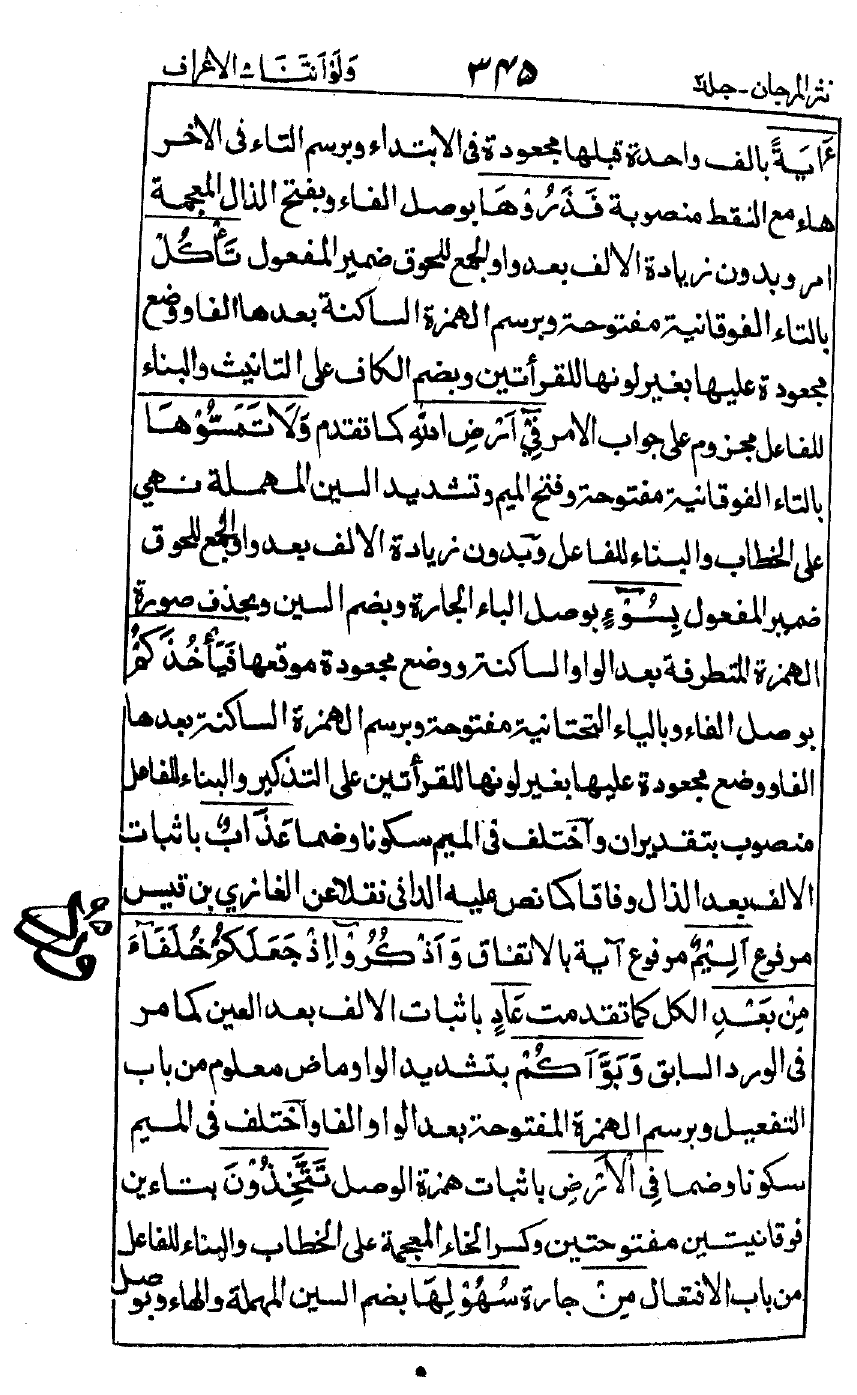 نثر المرجان - جلد ٢ ٣٤٥ ولو اننا ٨ الاعراف
ءَايَةً بالف واحدة قبلها مجعودة فى الابتداء وبرسم التاء فى الاخر
هاء مع النقط منصوبة فَذَرُوْهَا بوصل الفاء وبفتح الذال المعجمة
امر وبدون زيادة الالف بعد واو الجمع للحوق ضمير المفعول تَأْكُلْ
بالتاء الفوقانية مفتوحة وبرسم الهمزة الساكنة بعدها الفا ووضع
مجعودة عليها بغير لونها للقرأتين وبضم الكاف على التانيث والبناء
للفاعل مجزوم على جواب الامر فِيْٓ اَرْضِ اللهِ كما تقدم وَلَا تَمَسُّوْهَا
بالتاء الفوقانية مفتوحة وفتح الميم وتشديد السين المهملة نهي
على الخطاب والبناء للفاعل وبدون زيادة الالف بعد واو الجمع للحوق
ضمير المفعول بِسُوْٓءٍ بوصل الباء الجارة وبضم السين وبحذف صورة
الهمزة المتطرفة بعد الواو الساكنة ووضع مجعودة موقعها فَيَأْخُذَكُمْ
بوصل الفاء وبالياء التحتانية مفتوحة وبرسم الهمزة الساكنة بعدها
الفا ووضع مجعودة عليها بغير لونها للقرأتين على التذكير والبناء للفاعل
منصوب بتقدير ان واختلف فى الميم سكونا وضما عَذَابٌ باثبات
الالف بعد الذال وفاقا كما نص عليه الدانى نقلا عن الغازي بن قيس
مرفوع اَلِيْمٌ مرفوع آية بالاتفاق وَاذْكُرُوْٓا اِذْ جَعَلَكُمْ خُلَفَآءَ
مِنْ بَعْدِ الكل كما تقدمت عَادٍ باثبات الالف بعد العين كما مر
فى الورد السابق وَبَوَّاَكُمْ بتشديد الواو ماض معلوم من باب
التفعيل وبرسم الهمزة المفتوحة بعد الواو الفا واختلف فى الميم
سكونا وضما فِي الْاَرْضِ باثبات همزة الوصل تَتَّخِذُوْنَ بتاءين
فوقانيتين مفتوحتين وكسر الخاء المعجمة على الخطاب والبناء للفاعل
من باب الافتعال مِنْ جارة سُهُوْلِهَا بضم السين المهملة والهاء وبوصل